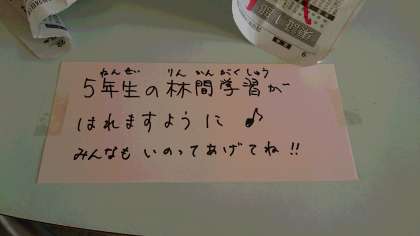 ねんせい りんかんがくしゅう
5年生の林間学習が
はれますように♪
みんなも いのってあげてね!!